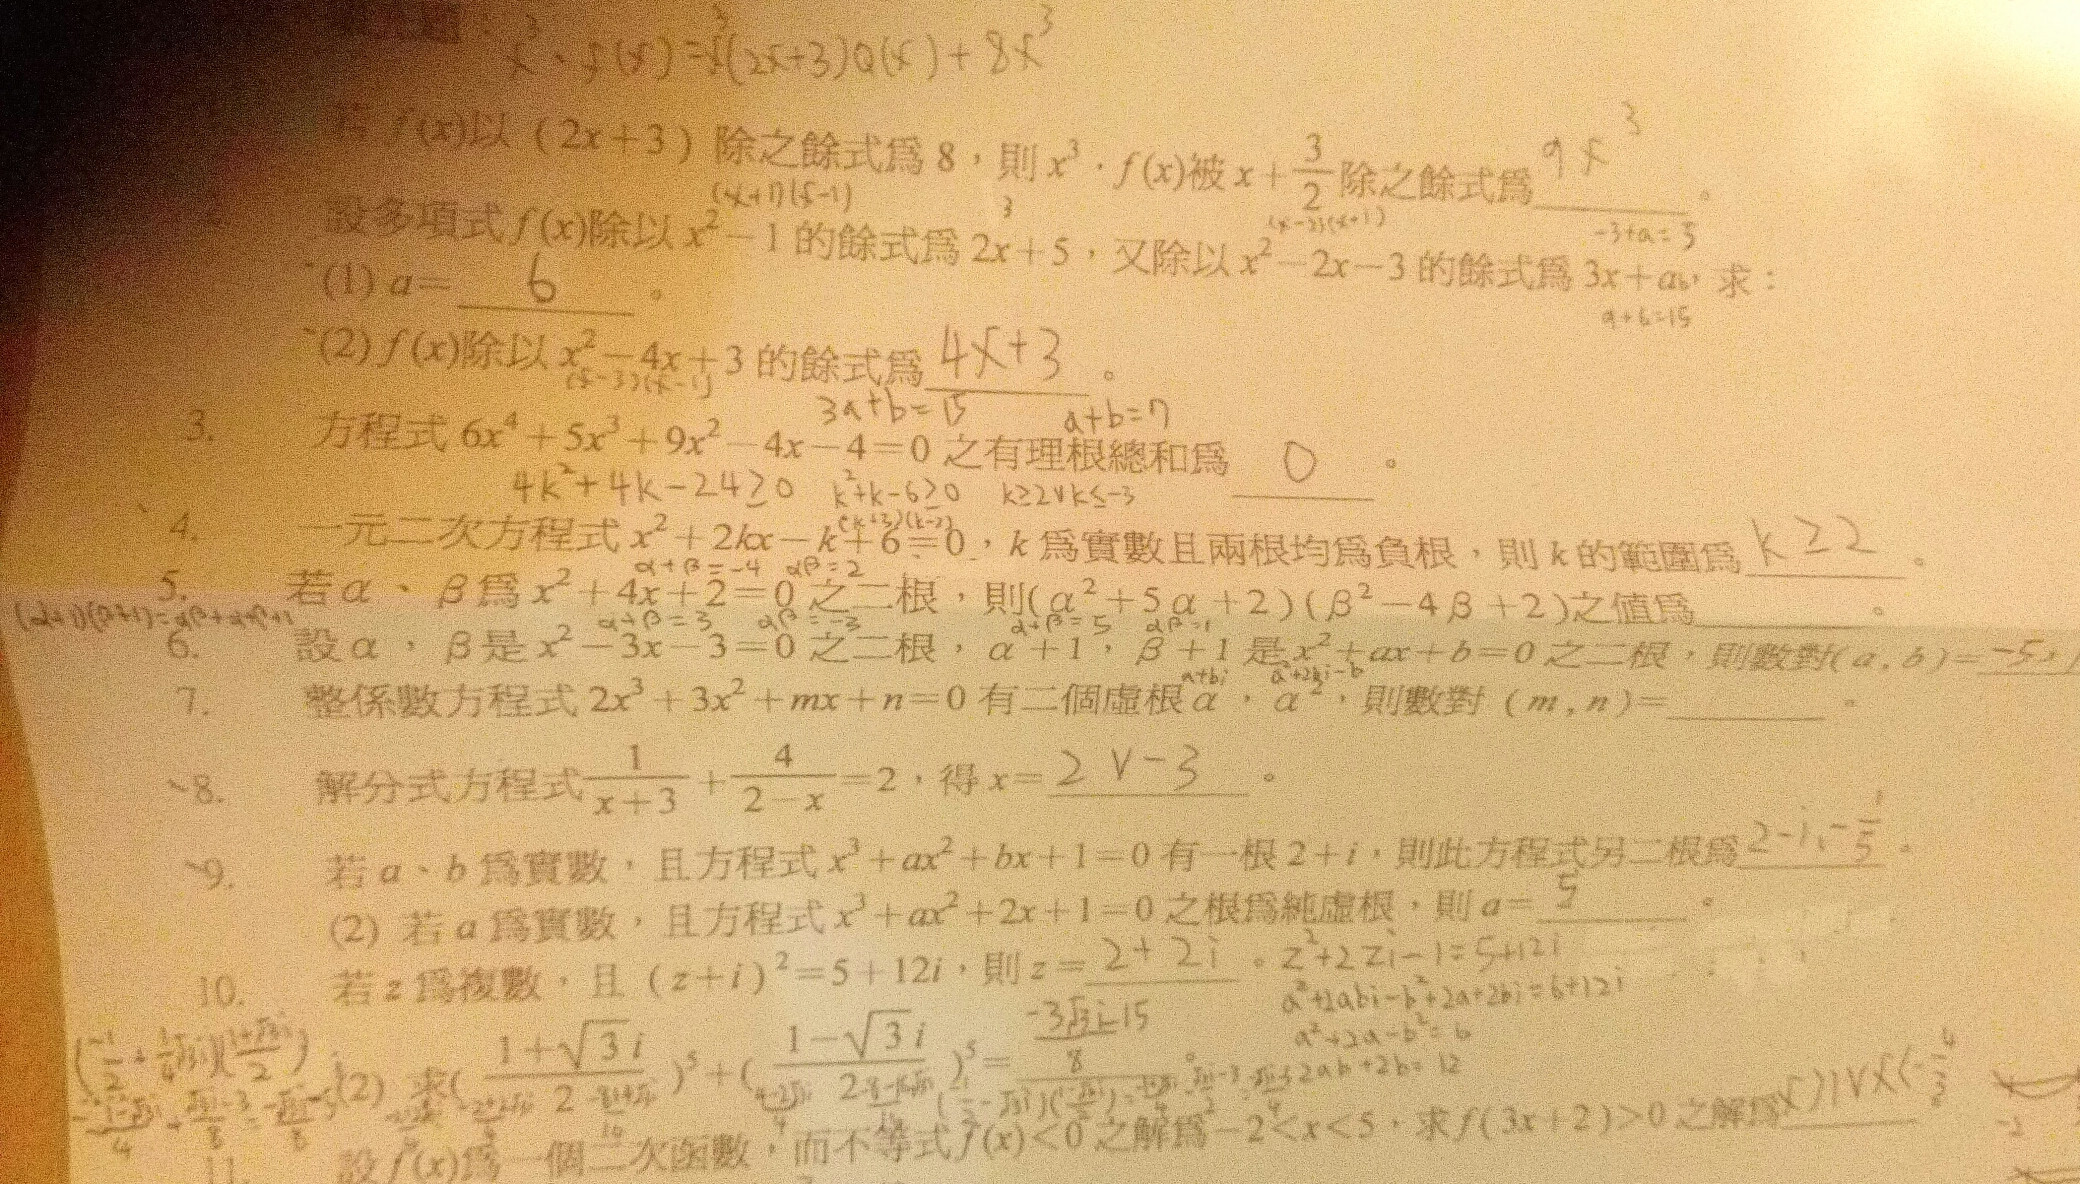 x³·f(x)=x³(2x+3)Q(x)+8x³
若 f(x)以（2x+3）除之餘式爲 8，則 x³·f(x)被 x+3/2 除之餘式爲 9x³。
(x+1)(x-1) (x-3)(x+1) -3+a=3
2. 設多項式 f(x)除以 x²−1 的餘式爲 2x+5，又除以 x²−2x−3 的餘式爲 3x+a，求：
(1) a= 6 。
a+6=15
(2) f(x)除以 x²−4x+3 的餘式爲 4x+3 。
(x-3)(x-1) 3a+b=15 a+b=7
3. 方程式 6x⁴+5x³+9x²−4x−4=0 之有理根總和爲 0 。
4k²+4k-24≥0 k²+k-6≥0 k≥2∨k≤-3
(k+3)(k-2)
4. 一元二次方程式 x²+2kx−k+6=0，k 爲實數且兩根均爲負根，則 k 的範圍爲 k≥2 。
α+β=-4 αβ=2
5. 若 α、β 爲 x²+4x+2=0 之二根，則(α²+5α+2)(β²−4β+2)之值爲 。
(α+1)(β+1)=αβ+α+β+1 α+β=3 αβ=-3 α+β=5 αβ=1
6. 設 α，β 是 x²−3x−3=0 之二根，α+1，β+1 是 x²+ax+b=0 之二根，則數對(a,b)=-5,1
a+bi a²+2bi-b
7. 整係數方程式 2x³+3x²+mx+n=0 有二個虛根 α，α²，則數對（m,n)= 。
8. 解分式方程式 1/(x+3)+4/(2−x)=2，得 x= 2∨-3 。
9. 若 a、b 爲實數，且方程式 x³+ax²+bx+1=0 有一根 2+i，則此方程式另二根爲 2-i,-1/5 。
(2) 若 a 爲實數，且方程式 x³+ax²+2x+1=0 之根爲純虛根，則 a= 5 。
10. 若 z 爲複數，且（z+i）²=5+12i，則 z= 2+2i 。 z²+2zi-1=5+12i
a²+2abi-b²+2a+2bi=6+12i
a²+2a-b²=6
2ab+2b=12
(2) 求((1+√3i)/2)⁵+((1−√3i)/2)⁵= (-3√3i-15)/8 。
11. 設 f(x)爲一個二次函數，而不等式 f(x)<0 之解爲 −2<x<5，求 f(3x+2)>0 之解爲 x>1∨x<-4/3
-2